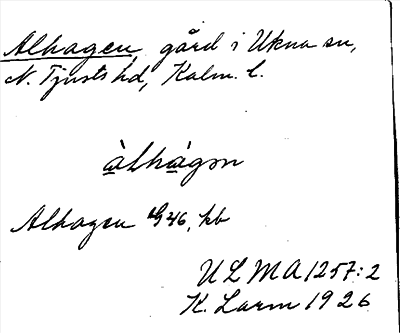 Alhagen, gård i Ukna sn,
N. Tjusts hd, Kalm. l.
àlhàgən
Alhagen 46, kb
ULMA 1257:2
K. Larm 1926